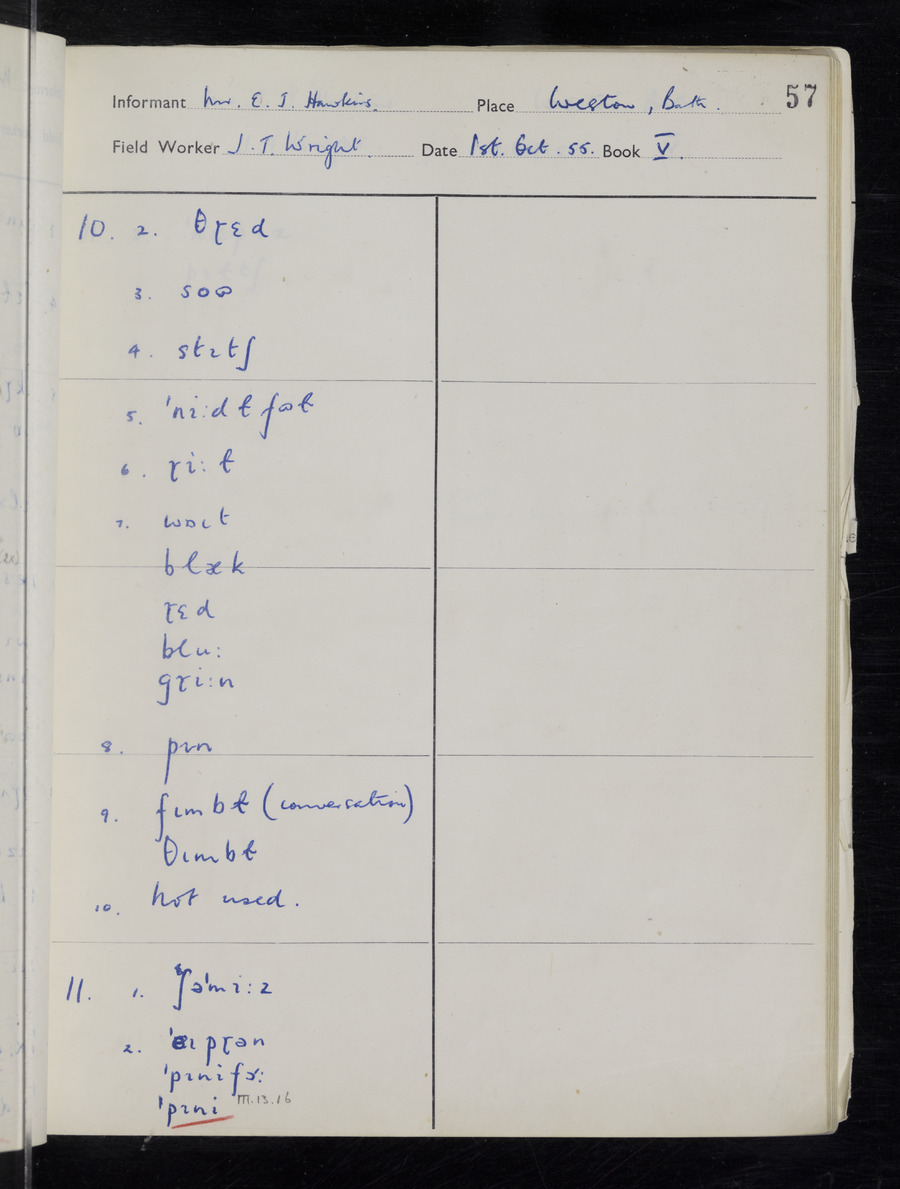 57
Informant Mr. E. J. Hawkins. Place Weston, Bath.
Field Worker J. T. Wright. Date 1st. Oct. 55. Book V.
10. 2. θɽɛd
3. soɷ
4. stɪtʃ
5. ˈniːdɫfɷɫ
6. ɽiːɫ
7. wɒɩt
blæk
ɽɛd
bluː
gɽiːn
8. pɪn
9. fɪmbɫ (conversation)
θɪmbɫ
10. Not used.
11. 1. ʃəˈmiːz
2. ˈɛɪpɽən
ˈpɪnifɔ:
ˈpɪni III.13.16